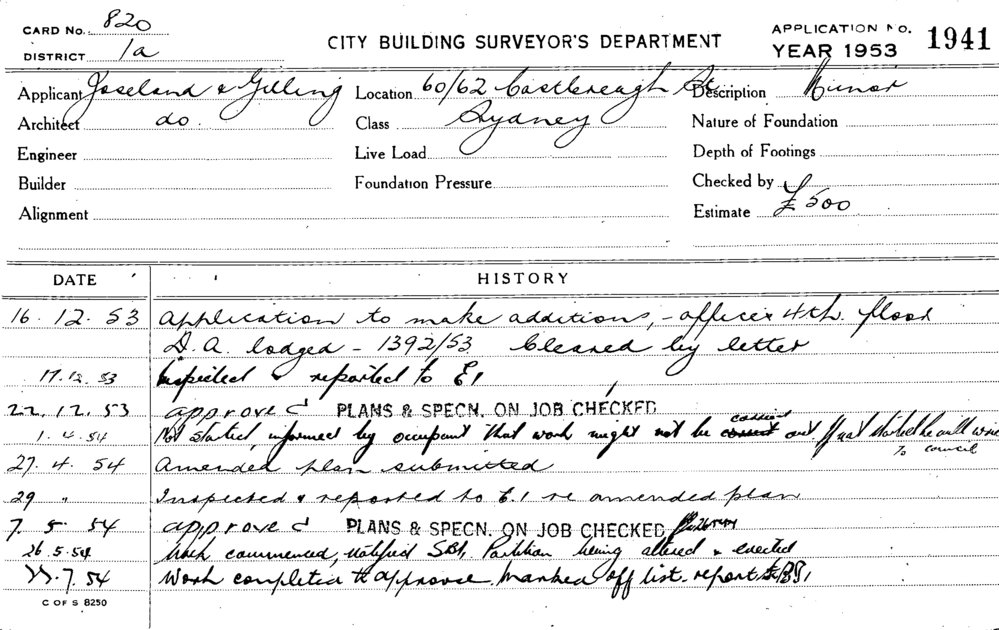 CARD No. 820
DISTRICT 1a
CITY BUILDING SURVEYOR'S DEPARTMENT
APPLICATION No. 1941
YEAR 1953
Applicant Joseland & Gilling Location 60/62 Castlereagh St. Description Minor
Architect do. Class Sydney Nature of Foundation
Engineer Live Load Depth of Footings
Builder Foundation Pressure Checked by
Alignment Estimate £500
DATE HISTORY
16.12.53 Application to make additions, - offices 4th. floor
D.A. lodged - 1392/53 Cleared by letter
17.12.53 Inspected & reported to E1
22.12.53 approved PLANS & SPECN. ON JOB CHECKED
1.4.54 Not started, informed by occupant that work might not be carried out If not started he will write
To council
27.4.54 Amended plan submitted
29 " Inspected & reported to E1 re amended plan
7.5.54 approved PLANS & SPECN. ON JOB CHECKED
26.5.54 Work commenced, notified SBI, Partition being altered & erected
.7.54 Work completed to approve. Marked off list. report to
C OF S 8250